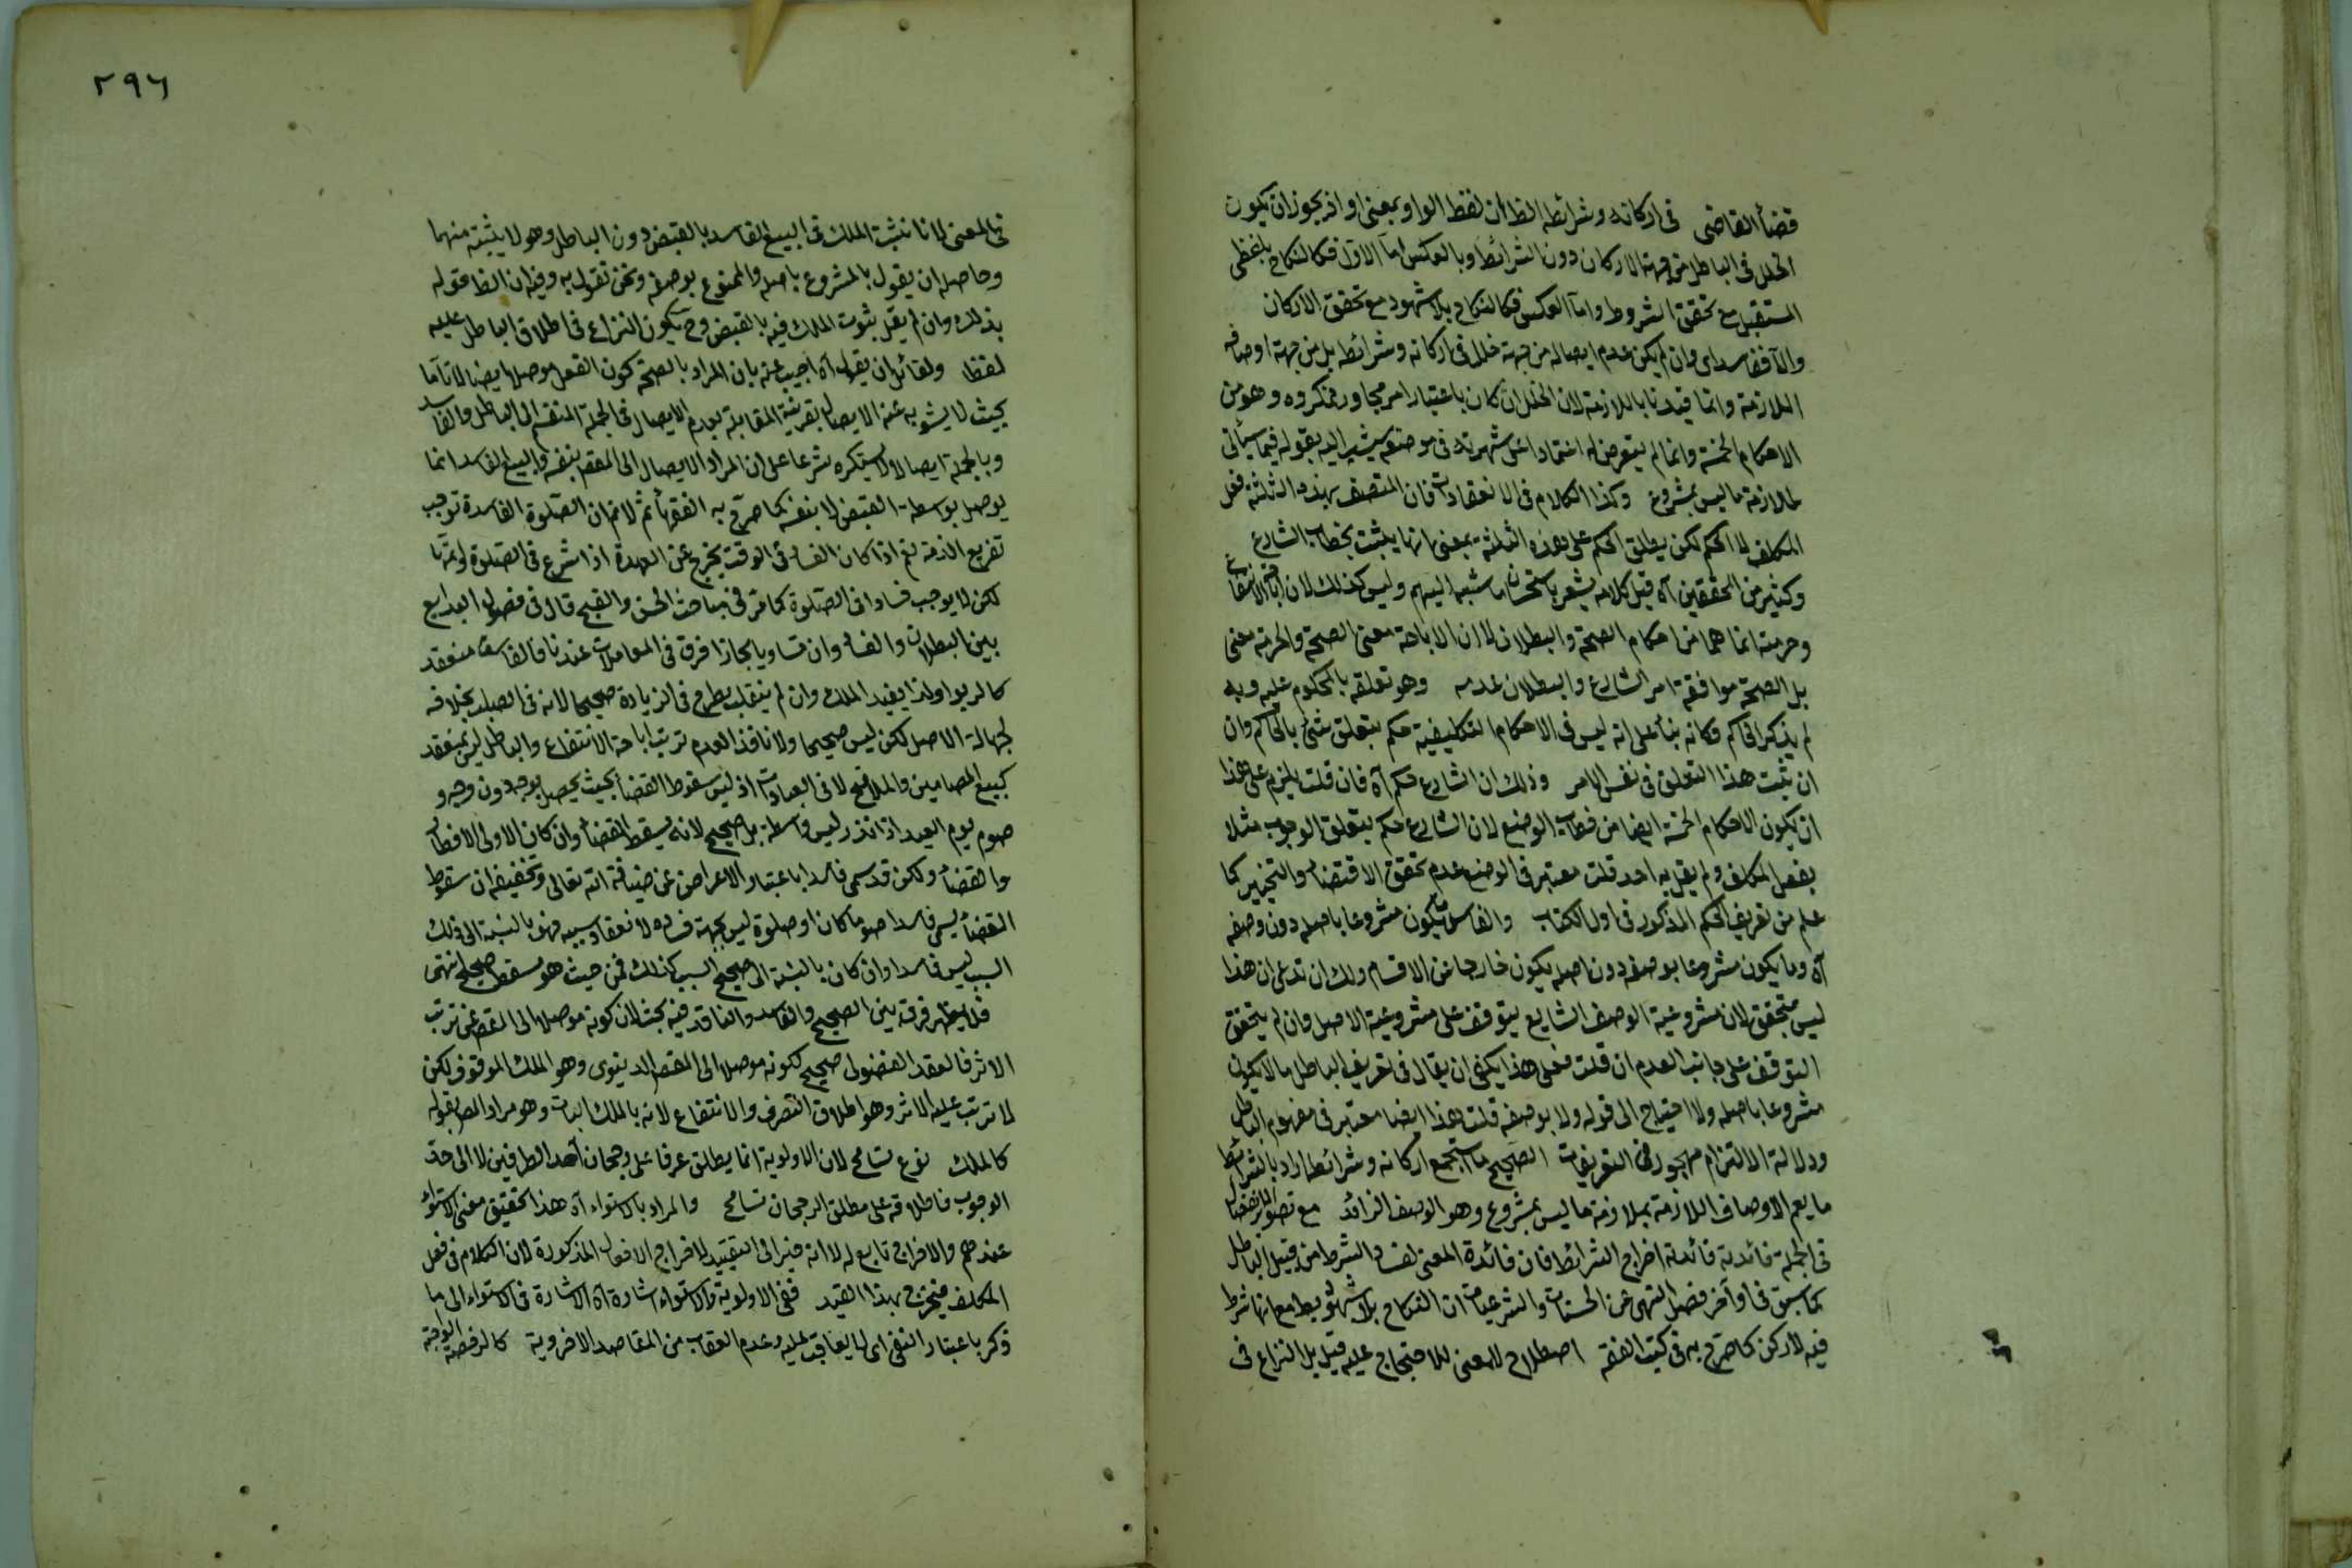 قضاء القاضى فى اركانه وشرائطه الظ ان لفظ الواو بمعنى او اذ يجوز ان يكون
الخلل فى الباطل من جهة الاركان دون الشرائط وبالعكس اما الاول فكالنكاح بلفظى
المستقبل مع تحقق الشروط واما العكس فكالنكاح بلا شهود مع تحقق الاركان
والا ففاسد اى وان لم يكن عدم ايصاله من جهة خلل فى اركانه وشرائطه بل من جهة اوصافه
اللازمة وانما قيدنا باللازمة لان الخلل ان كان باعتبار امر مجاور فمكروه وهو من
الاحكام الخمسة وانما لم يتعرض له اعتمادا على شهرته فى موضعه يشير اليه بقوله فيما سيأتى
لملازمة ما ليس بمشروع وكذا الكلام فى الانعقاد فان المتصف بهذه الثلثة فعل
المكلف لا الحكم لكن يطلق الحكم على هذه الثلثة بمعنى انها يثبت بخطاب الشارع
وكثير من المحققين آه قيل كلامه يشعر باستحسان ما نسبه اليهم وليس كذلك لان اباحة الانتفاع
وحرمته انما هما من احكام الصحة والبطلان لا ان الاباحة معنى الصحة والحرمة معنى
بل الصحة موافقة امر الشارع والبطلان عدمه وهو تعلقه بالمحكوم عليه وبه
لم يذكر الحاكم فكانه بناء على انه ليس فى الاحكام التكليفية حكم يتعلق شئ بالحاكم وان
ان ثبت هذا التعلق فى نفس الامر وذلك ان الشارع حكم آه فان قلت يلزم على هذا
ان يكون الاحكام الخمسة ايضا من خطاب الوضع لان الشارع حكم بتعلق الوجوب مثلا
بفعل المكلف ولم يقل به احد قلت معتبر فى الوضع عدم تحقق الاقتضاء والتخيير كما
علم من تعريف الحكم المذكور فى اول الكتاب والفاسد يكون مشروعا باصله دون وصفه
آه وما يكون مشروعا بوصفه دون اصله يكون خارجا عن الاقسام ولك ان تدعى ان هذا
ليس بتحقق لان مشروعية الوصف الشايع يتوقف على مشروعية الاصل وان لم يتحقق
التوقف على جانب العدم ان قلت فعلى هذا يكفى ان يقال فى تعريف الباطل ما لا يكون
مشروعا باصله ولا احتياج الى قوله ولا بوصفه قلت هذا ايضا معتبر فى مفهوم الباطل
ودلالة الالتزام مهجور فى التعريفات الصحيح ما استجمع اركانه وشرائطه اراد بالشرائط
ما يعم الاوصاف اللازمة بملازمة ما ليس بمشروع وهو الوصف الزائد مع تصور الانفصال
فى الجملة فائدته فائدة اخراج الشرائط فان فائدة المعنى لفساد الشرط من قبيل الباطل
كما سبق فى اواخر فصل النهى عن الحسيات والشرعيات ان النكاح بلا شهود باطل مع انها شرط
فيه لا ركن كما صرح به فى كتب الفقه اصطلاح لا معنى للاحتجاج عليه قيل بل النزاع فى
٢٩٦
فى المعنى لانا نثبت الملك فى البيع الفاسد بالقبض دون الباطل وهو لا يثبته منهما
وحاصله ان يقول بالمشروع باصله والممنوع بوصفه ونحن نقول به وفيه ان الظ قوله
بذلك وان لم يقل بثبوت الملك فيه بالقبض وح يكون النزاع فى اطلاق الباطل عليه
لفظا ولقائل ان يقول آه اجيب عنه بان المراد بالصحة كون الفعل موصلا ايصالا تاما
بحيث لا يشوبه عنه الايصال بقرينة المقابلة بعدم الايصال فى الجملة المنقسم الى الباطل والفاسد
وبالجملة ايصالا لا يستكره شرعا على ان المراد الايصال الى المقص بنفسه والبيع الفاسد انما
يوصل بواسطة القبض لا بنفسه كما صرح به الفقهاء ثم لا نم ان الصلوة الفاسدة توجب
تفريغ الذمة نعم اذا كان الفساد فى الوقت يخرج عن العهدة اذا شرع فى الصلوة واتمها
لكن لا يوجب فسادا فى الصلوة كما مر فى مباحث الحسن والقبح قال فى فصول البدايع
بين البطلان والفساد وان تساويا مجازا فرق فى المعاملات عندنا فالفاسد منعقد
كالربوا ولذا يفيد الملك وان لم ينقلب بطرح فى الزيادة صحيحا لانه فى الصلب بخلافه
لجهالة الاصل لكن ليس صحيحا ولا نافذا لعدم ترتب اباحة الانتفاع والباطل ليس بمنعقد
كبيع المضامين والملاقيح لا فى العبادات اذ ليس سقوط القضاء بحيث يحصل بوجه دون وجه و
صوم يوم العيد اذا نذر ليس واسطة بل صحيح لانه يسقط القضاء وان كان الاولى الافطار
والقضاء ولكن قد سمى فاسدا باعتبار الاعراض عن ضيافة الله تعالى وتحقيقه ان سقوط
القضاء يسمى فاسدا صوما كان او صلوة ليس بجهة فساده لانعقاد سببه فهو بالنسبة الى ذلك
السبب ليس فاسدا وان كان بالنسبة الى صحيح السبب كذلك فمن حيث هو مسقط صحيح انتهى
فلا يظهر فرق بين الصحيح والفاسد والنافذ فيه بحث لان كونه موصلا الى المقص غير ترتب
الاثر فالعقد الفضولى صحيح ككونه موصلا الى المقص الدنيوى وهو الملك الموقوف لكن
لا ترتب عليه الاثر وهو اطلاق التصرف والانتفاع لانه بالملك البات وهو مراد المص بقوله
كالملك نوع تسامح لان الاولوية انما يطلق عرفا على رجحان احد الطرفين لا الى حد
الوجوب فاطلاقه على مطلق الرجحان تسامح والمراد بالاستواء آه هذا تحقيق معنى الاستواء
عندهم والاخراج تابع له لا انه خير الى التقييد لاخراج الافعال المذكورة لان الكلام فى فعل
المكلف فيخرج بهذا القيد ففى الاولوية والاستواء اشارة آه الاشارة فى الاستواء الى ما
ذكر باعتبار النفى اى لا يعاقب عليه وعدم العقاب من المقاصد الاخروية كالرخصة الواجبة